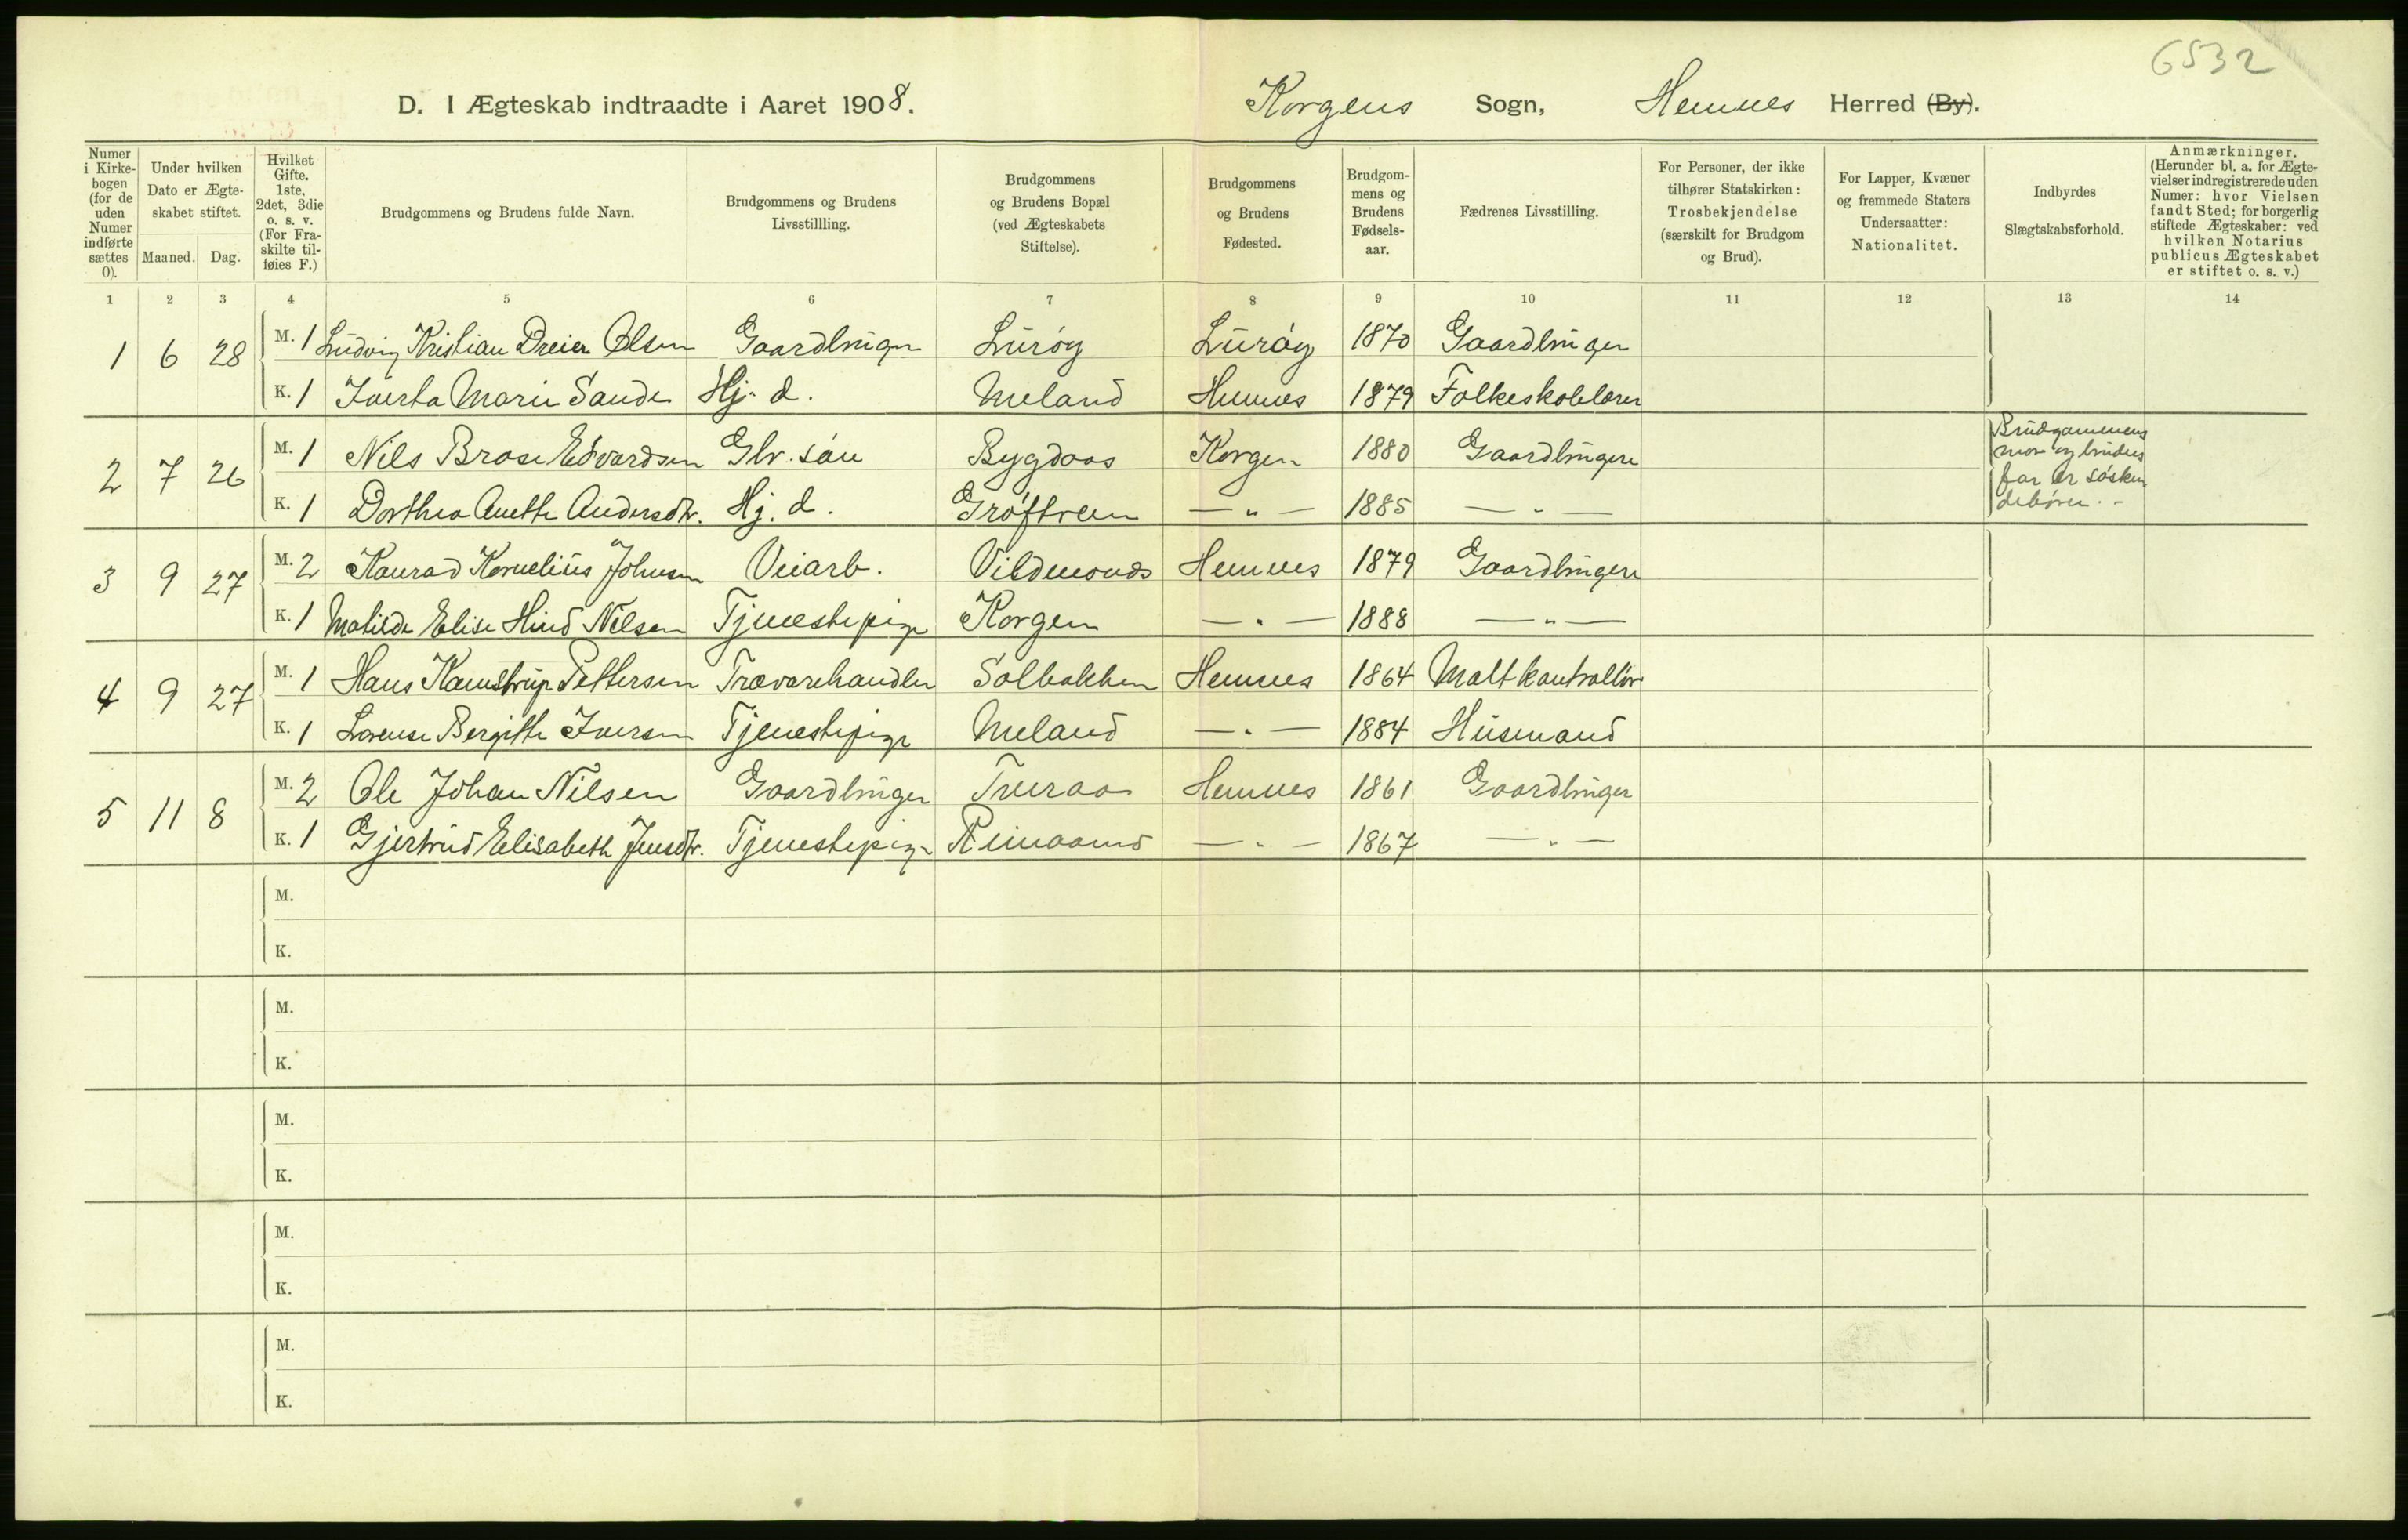 6532
D. I Ægteskab indtraadte i Aaret 1908. Korgens Sogn, Hemnes Herred (By).
Numer i Kirkebogen (for de uden Numer indførte sættes 0).
Under hvilken Dato er Ægteskabet stiftet.
Maaned. Dag.
Hvilket Gifte. 1ste, 2det, 3die o. s. v. (For Fraskilte tilføies F.)
Brudgommens og Brudens fulde Navn.
Brudgommens og Brudens Livsstillling.
Brudgommens og Brudens Bopæl (ved Ægteskabets Stiftelse).
Brudgommens og Brudens Fødested.
Brudgommens og Brudens Fødselsaar.
Fædrenes Livsstilling.
For Personer, der ikke tilhører Statskirken: Trosbekjendelse (særskilt for Brudgom og Brud).
For Lapper, Kvæner og fremmede Staters Undersaatter: Nationalitet.
Indbyrdes Slægtskabsforhold.
Anmærkninger. (Herunder bl. a. for Ægtevielser indregistrerede uden Numer: hvor Vielsen fandt Sted; for borgerlig stiftede Ægteskaber: ved hvilken Notarius publicus Ægteskabet er stiftet o. s. v.)
1 2 3 4 5 6 7 8 9 10 11 12 13 14
1 6 28 M. 1 Ludvig Kristian Dreier Olsen Gaardbruger Lurøy Lurøy 1870 Gaardbruger
K. 1 Iverta Marie Sande Hj. d. Meland Hemnes 1879 Folkeskolelærer
2 7 26 M. 1 Nils Brase Edvardsen Gbr. søn Bygdaas Korgen 1880 Gaardbrugere
K. 1 Dorthea Anette Andersdtr. Hj. d. Grøftrem — „ — 1885 — „ —
Brudgommens
mor og brudens
far er søsken
debørn. -
3 9 27 M. 2 Konrad Kornelius Johnsen Veiarb. Vildmoens Hemnes 1879 Gaardbrugere
K. 1 Matilde Elise Hind Nilsen Tjenestepige Korgen — „ — 1888 — „ —
4 9 27 M. 1 Hans Kamstrup Pettersen Trævarehandler Solbakken Hemnes 1864 Maltkontrollør
K. 1 Lorense Bergitte Iversen Tjenestepige Meland — „ — 1884 Husmand
5 11 8 M. 2 Ole Johan Nilsen Gaardbruger Hemnes 1861 Gaardbruger
K. 1 Gjertrud Elisabeth Jensdtr. Tjenestepige — „ — 1867 — „ —
M.
K.
M.
K.
M.
K.
M.
K.
M.
K.